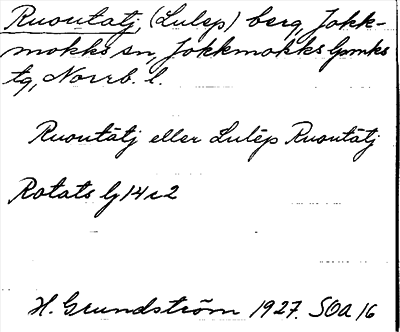 Ruoutatj, (Lulep) berg, Jokk-
mokks sn, Jokkmokks lpmks
tg, Norrb. l.
Ruoutātj eller Lulēp Ruoutātj
Rotats lj 14 c 2
H. Grundström 1927. SOA 16